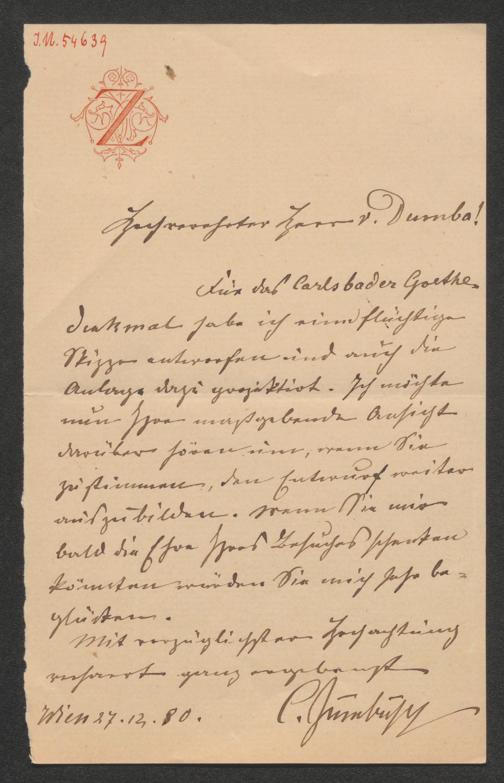 J.N. 54639
Z
Hochverehrter Herr v. Dumba!
Für das Carlsbader Goethe
denkmal habe ich eine flüchtige
Skizze entworfen und auch die
Anlage dazu projektirt. Ich möchte
nun Ihre maßgebende Ansicht
darüber hören um, wenn Sie
zustimmen, den Entwurf weiter
auszubilden. Wenn Sie mir
bald die Ehre Ihres Besuches schenken
könnten würden Sie mich sehr be=
glücken.
Mit vorzüglichster Hochachtung
verharrt ganz ergebenst
Wien 27.12.80. C. Zumbusch